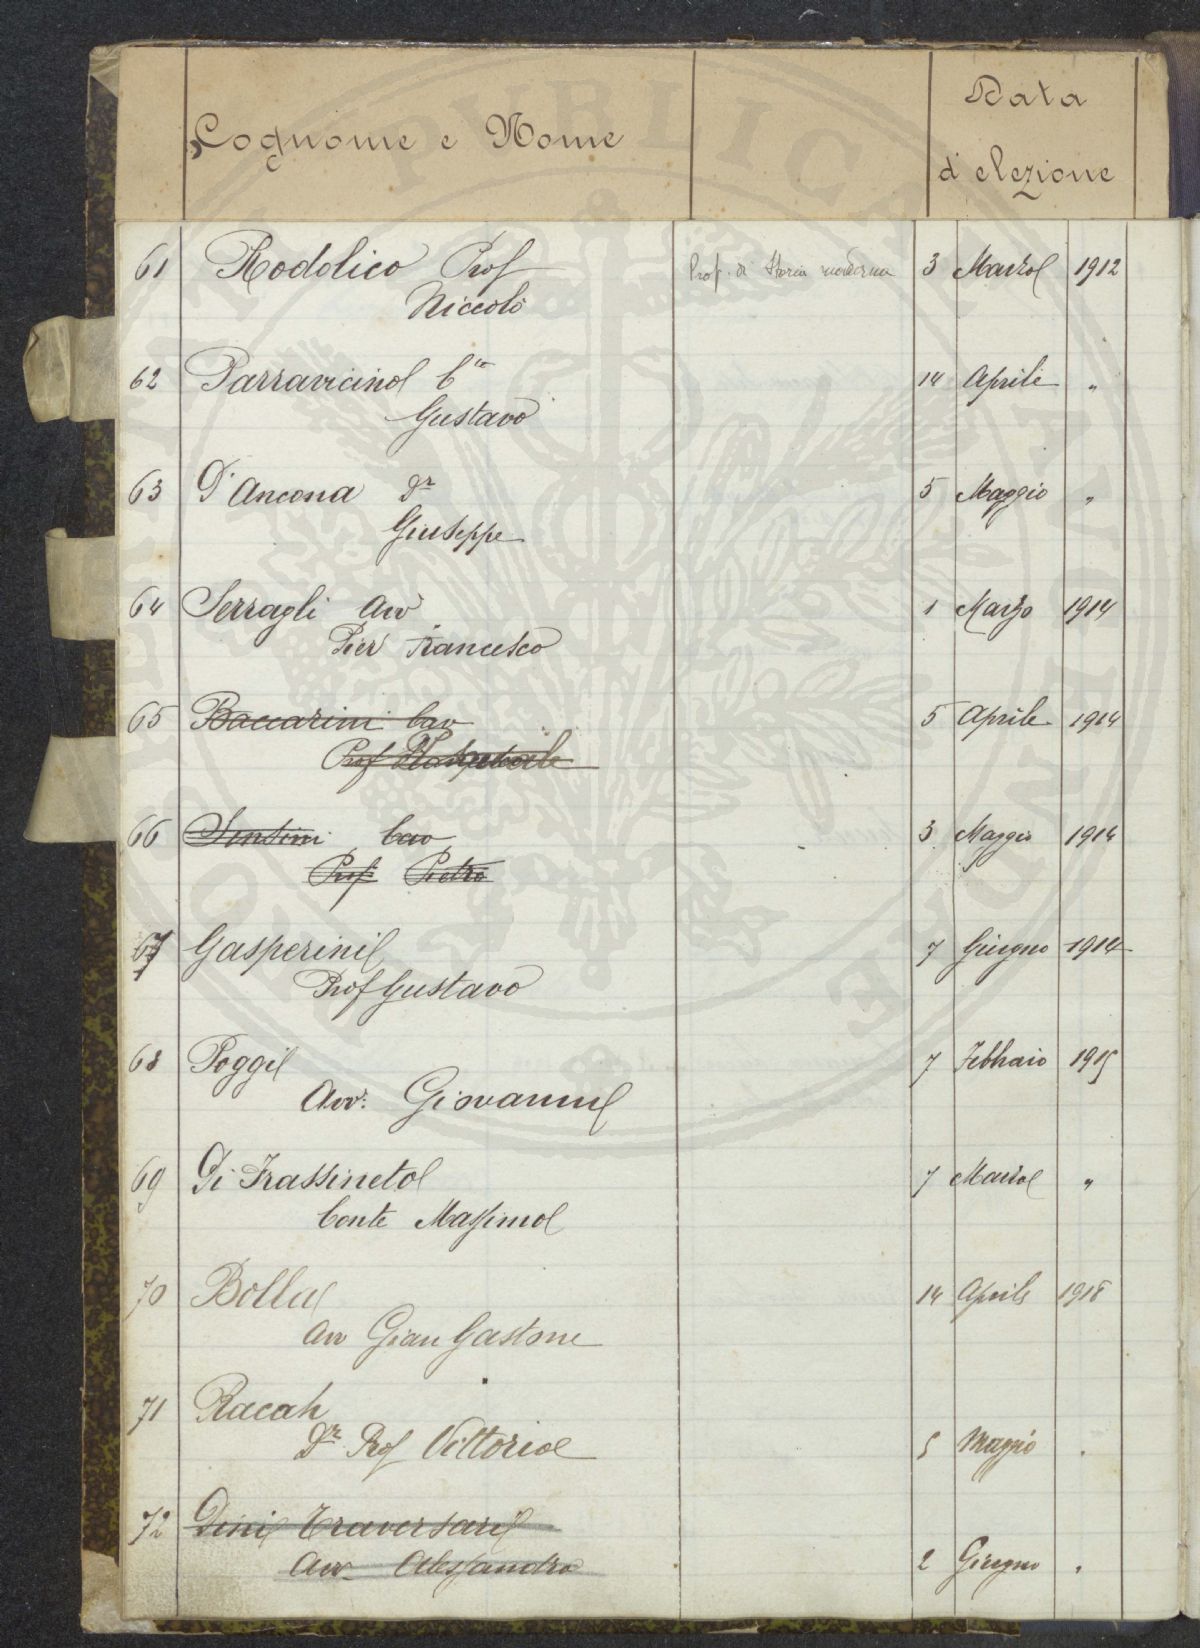 Cognome e Nome
Data
d'elezione
61 Rodolico Prof Prof. di Storia moderna 3 Marzo 1912
Niccolò
62 Parravicino Cte 14 Aprile "
Gustavo
63 D'Ancona Dr 5 Maggio "
Giuseppe
64 Serragli Avv 1 Marzo 1914
Pier Francesco
65 Baccarini Cav 5 Aprile 1914
Prof Pasquale
66 Sensini Cav 3 Maggio 1914
Prof Pietro
67 Gasperini 7 Giugno 1914
Prof Gustavo
68 Poggi 7 Febbraio 1915
Avv. Giovanni
69 Di Frassineto 7 Marzo "
Conte Massimo
70 Bolla 14 Aprile 1918
Avv Gian Gastone
71 Racah
Dr Prof Vittorio 5 Maggio "
72 Dini Traversari
Avv. Alessandro 2 Giugno "